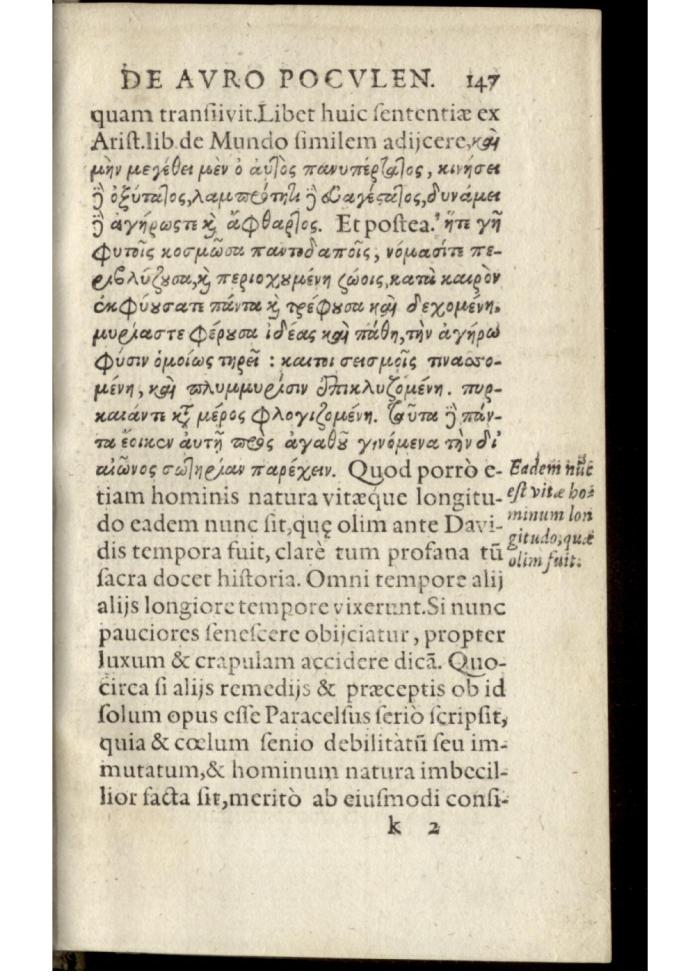 DE AVRO POCVLEN. 147
quam transiivit. Libet huic sententiæ ex
Arist. lib. de Mundo similem adijcere, καὶ
μὴν μεγέθει μὲν ὁ αὐτὸς πανυπέρτατος, κινήσει
ἢ ὀξύτατος, λαμπρότητι ἢ , δυνάμει
ἢ ἀγήρωςτε κὶ ἄφθαρτος. Et postea. ἥτε γῆ
φυτοῖς κοσμῶσα παντοδαποῖς, νόμασίτε πε-
ριβλύζουσα, κὶ περιοχουμένη ζώοις, κατὰ καιρὸν
ἐκφύουσατε πάντα κὶ τρέφουσα καὶ δεχομένη,
μυρίαστε φέρουσα ἰδέας καὶ πάθη, τὴν ἀγήρω
φύσιν ὁμοίως τηρεῖ : καιτοι σεισμοῖς τινασσο-
μένη, καὶ πλημμυρίσιν ἐπικλυζομένη. πυρ-
καιάντε κτ μέρος φλογιζομένη. ταῦτα ἢ πάν-
τα ἔοικεν αὐτῆ πρὸς ἀγαθοῦ γινόμενα τὴν δι'
αἰῶνος σωτηρίαν παρέχειν. Quod porrò e-
tiam hominis natura vitæque longitu-
do eadem nunc sit, quę olim ante Davi-
dis tempora fuit, clarè tum profana tū
sacra docet historia. Omni tempore alij
alijs longiore tempore vixerunt. Si nunc
pauciores senescere obijciatur, propter
luxum & crapulam accidere dicā. Quo-
circa si alijs remedijs & præceptis ob id
solum opus esse Paracelsus seriò scripsit,
quia & cœlum senio debilitatū seu im-
mutatum, & hominum natura imbecil-
lior facta sit, meritò ab eiusmodi consi-
k 2
Eadem nūc
est vitæ ho-
minum lon
gitudo, quæ
olim fuit.